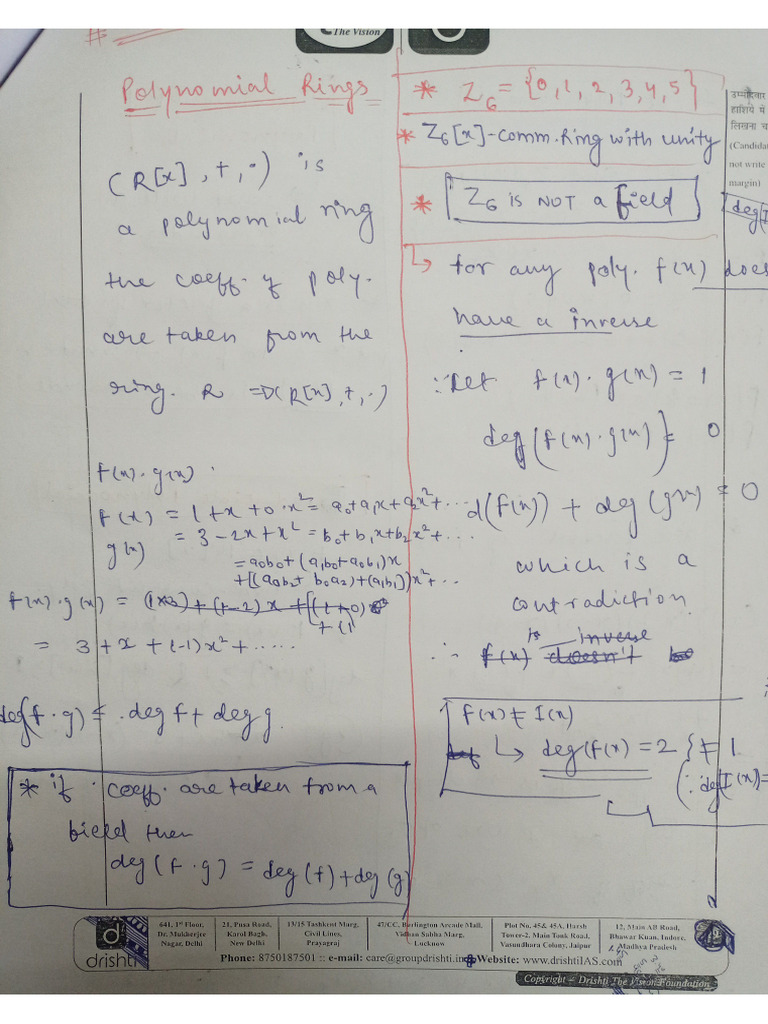 The Vision
#
Polynomial Rings
(R[x], +, ·) is
a polynomial ring
the coeff. of poly.
are taken from the
ring. R ⇒ (R[x], +, ·)
f(x) · g(x) ·
f(x) = 1 + x + 0·x² = a₀+a₁x+a₂x²+...
g(x) = 3 - 2x + x² = b₀+b₁x+b₂x²+...
= a₀b₀+(a₁b₀+a₀b₁)x
+[(a₀b₂+ b₀a₂)+(a₁b₁)]x²+..
f(x)·g(x) = (1×3)+(1-2)x+[(1+0)
+(1
= 3 + x + (-1)x² + .....
deg(f·g) ≤ deg f + deg g.
* if coeff. are taken from a
field then
deg(f·g) = deg(f)+deg(g)
* Z₆ = {0, 1, 2, 3, 4, 5}
* Z₆[x] - comm. Ring with unity
* Z₆ is NOT a field
↳ for any poly. f(x) does
have a inverse
∵ Let f(x)·g(x) = 1
deg(f(x)·g(x)) = 0
d(f(x)) + deg(g(x)) = 0
which is a
contradiction
is inverse
∴ f(x) doesn't be
f(x) ≠ I(x)
↳ deg(f(x) = 2 } ≠ 1
(∵ deg I(x) =
उम्मीदवार
हाशिये में
लिखना च
(Candida
not write
margin)
deg(I
d
drishti
641, 1st Floor,
Dr. Mukherjee
Nagar, Delhi
21, Pusa Road,
Karol Bagh,
New Delhi
13/15 Tashkent Marg,
Civil Lines,
Prayagraj
47/CC, Burlington Arcade Mall,
Vidhan Sabha Marg,
Lucknow
Plot No. 45& 45A, Harsh
Tower-2, Main Tonk Road,
Vasundhara Colony, Jaipur
12, Main AB Road,
Bhawar Kuan, Indore,
Madhya Pradesh
Phone: 8750187501 :: e-mail: care@groupdrishti.in Website: www.drishtiIAS.com
Copyright – Drishti The Vision Foundation